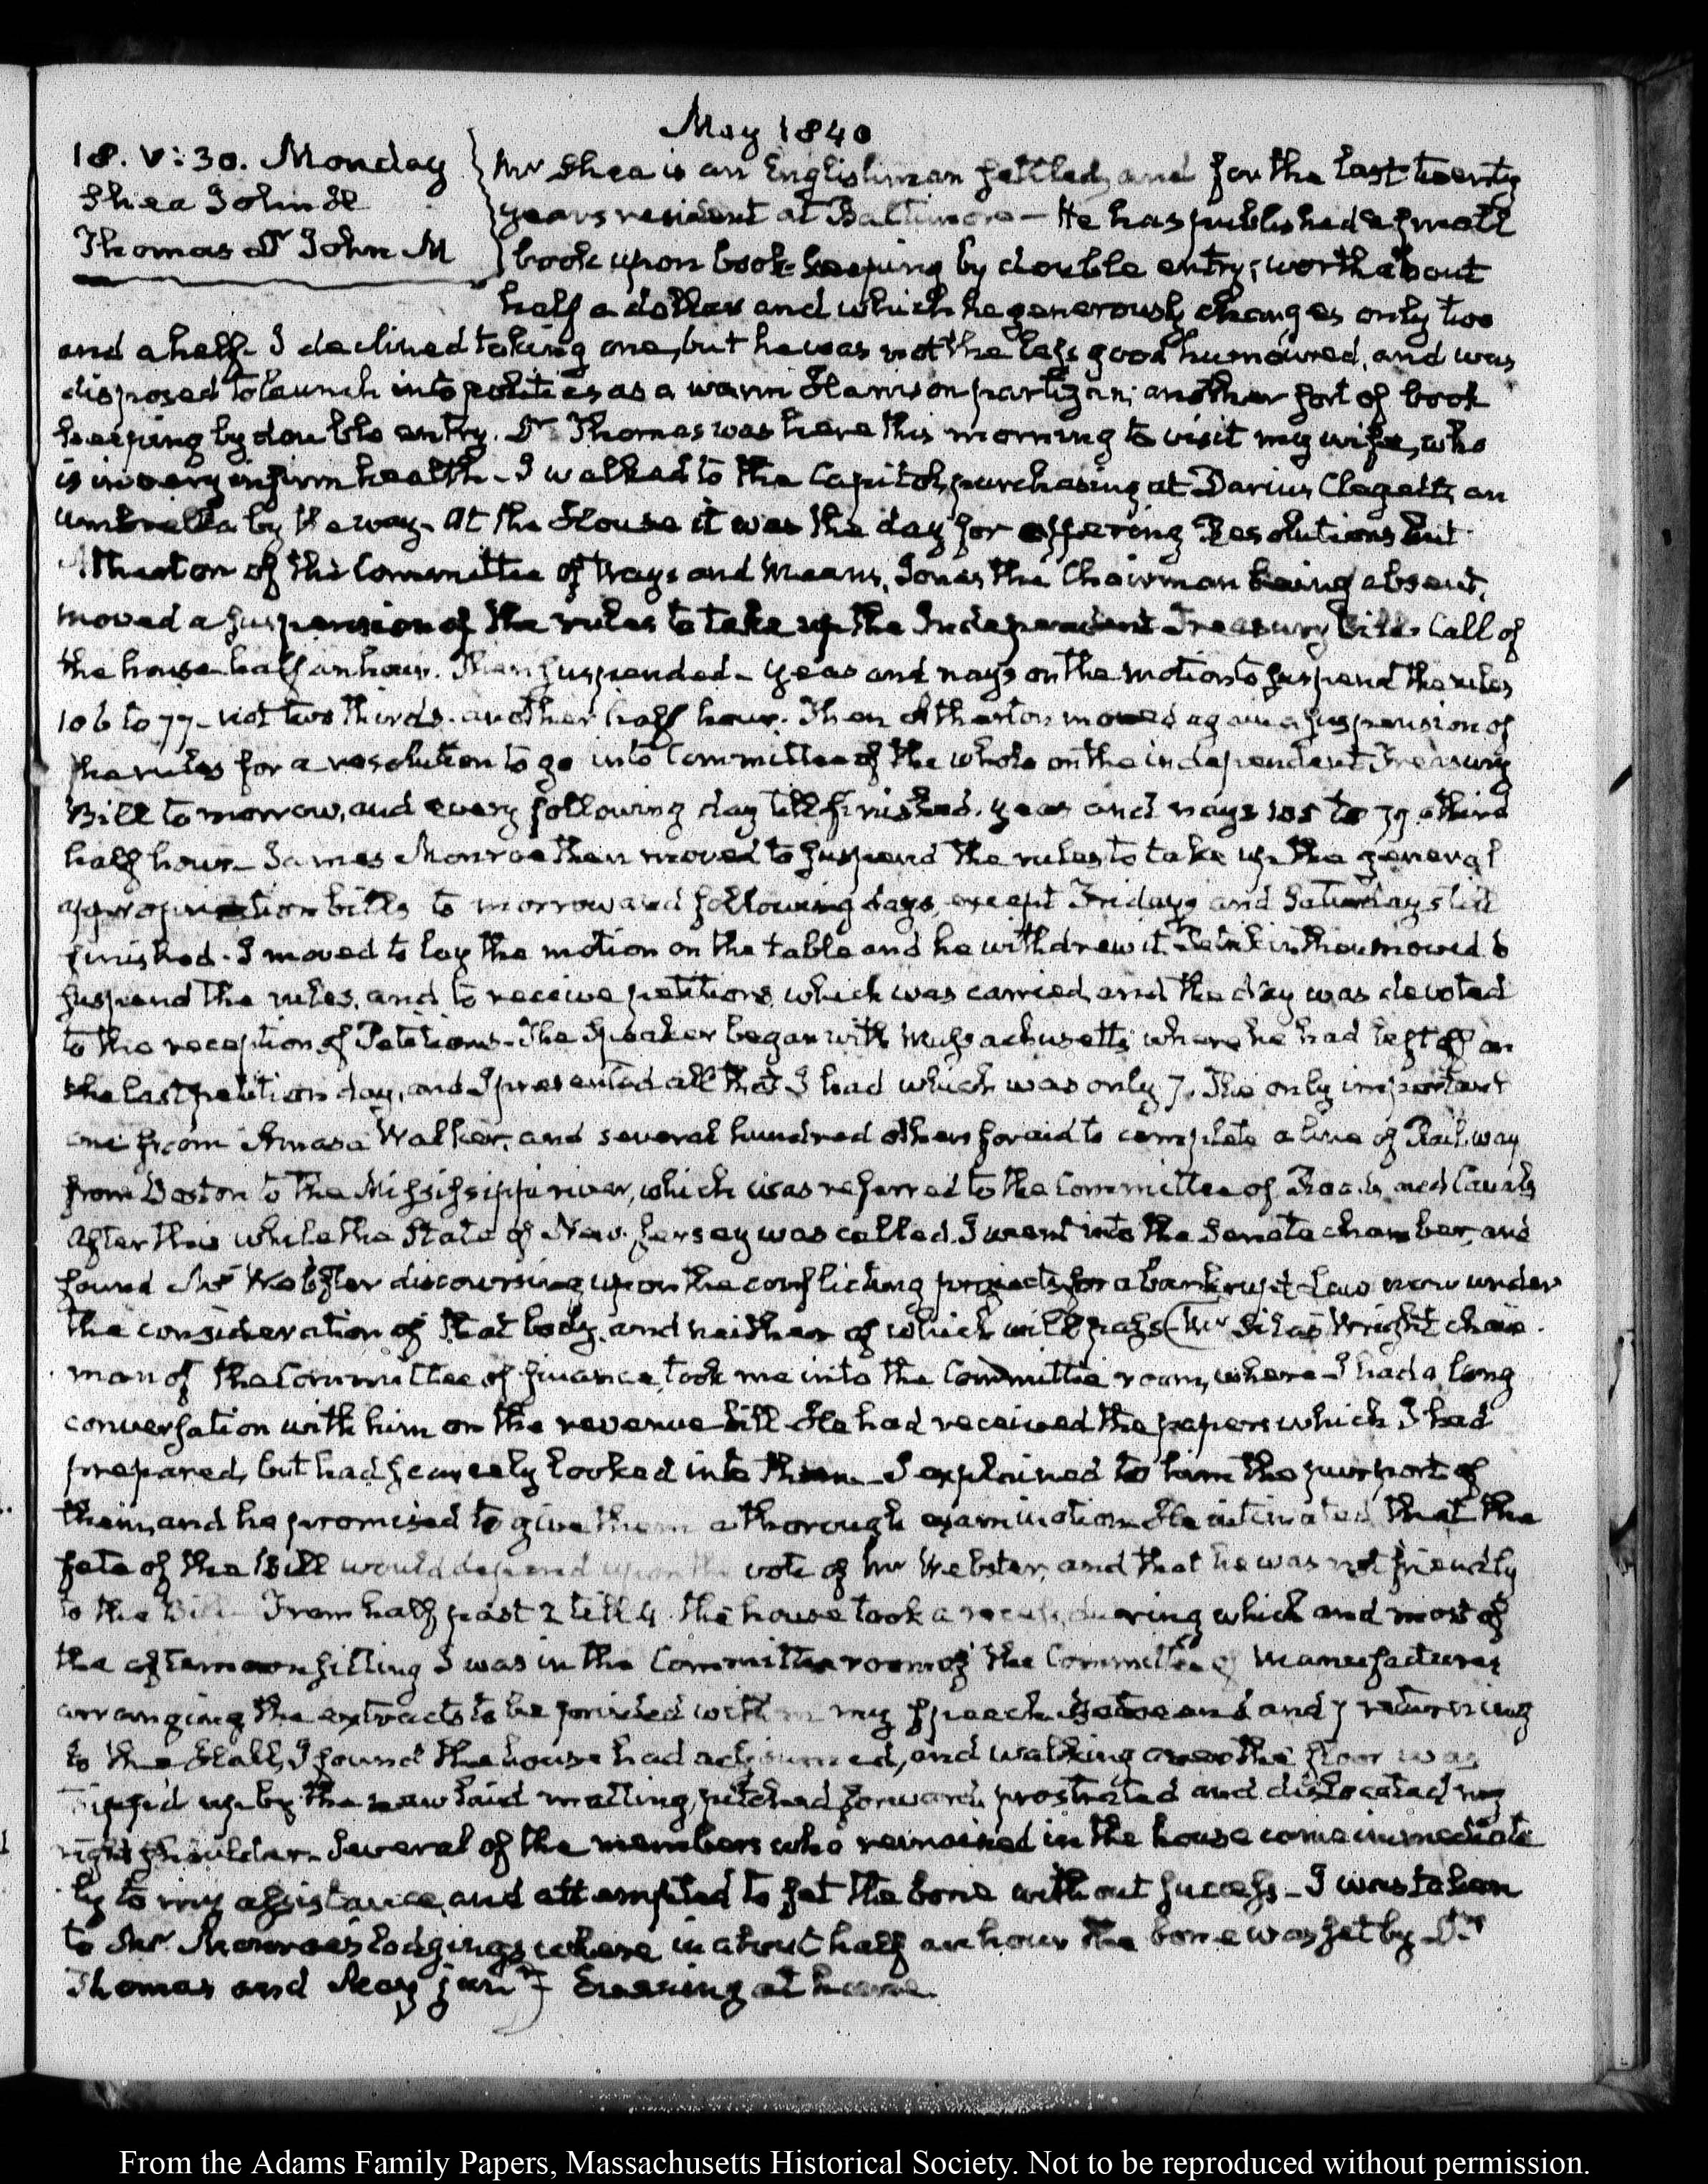 May 1840
18. V:30. Monday
Shea John H
Thomas Dr John M
Mr Shea is an Englishman settled, and for the last twenty
years resident at Baltimore — He has published a small
book upon book-keeping by double entry; worth about
half a dollar and which he generously charges only two
and a half. I declined taking one, but he was not the less good humoured, and was
disposed to launch into politics as a warm Harrison partizan; another sort of book
keeping by double entry. Dr Thomas was here this morning to visit my wife, who
is in very infirm health. I walked to the Capitol, purchasing at Darius Clagett's an
umbrella by the way. At the House it was the day for offering Resolutions but
Atherton of the Committee of Ways and Means, Jones the Chairman being absent,
moved a suspension of the rules to take up the Independent Treasury Bill. Call of
the house half an hour. Then suspended — yeas and nays on the motion to suspend the rules
106 to 77 — not two thirds. another half hour. Then Atherton moved again a suspension of
the rules for a resolution to go into Committee of the whole on the independent Treasury
Bill to morrow, and every following day till finished. yeas and nays 105 to 79 a third
half hour — James Monroe then moved to suspend the rules to take up the general
appropriation bills to morrow and following days, except Fridays and Saturdays till
finished. I moved to lay the motion on the table and he withdrew it. then moved to
suspend the rules, and to receive petitions, which was carried, and the day was devoted
to the reception of Petitions. The Speaker began with Massachusetts where he had left off on
the last petition day, and I presented all that I had which was only 7. The only important
one from Amasa Walker, and several hundred others for aid to complete a line of Railway
from Boston to the Mississippi river, which was referred to the Committee of Roads and Canals
After this while the State of New Jersey was called I went into the Senate chamber, and
found Mr Webster discoursing upon the conflicting projects for a bankrupt Law now under
the consideration of that body, and neither of which will pass (Mr Silas Wright chair-
man of the Committee of finance, took me into the Committee room, where I had a long
conversation with him on the revenue bill. He had received the papers which I had
prepared, but had scarcely looked into them — I explained to him the purport of
them, and he promised to give them a thorough examination. He intimated that the
fate of the Bill would depend upon the vote of Mr Webster, and that he was not friendly
to the Bill. From half past 2 till 4 the house took a recess, during which and most of
the afternoon sitting I was in the Committee room of the Committee of Manufactures
arranging the extracts to be printed with my speech. Between 6 and 7 returning
to the Hall, I found the house had adjourned, and walking over the floor was
tripp'd up by the new laid matting, pitched forward, prostrated and dislocated my
right shoulder. Several of the members who remained in the house came immediate-
ly to my assistance, and attempted to set the bone without success — I was taken
to Mr. Monroe's lodgings where in about half an hour the bone was set by Drs
Thomas and May junr) Evening at home.
From the Adams Family Papers, Massachusetts Historical Society. Not to be reproduced without permission.